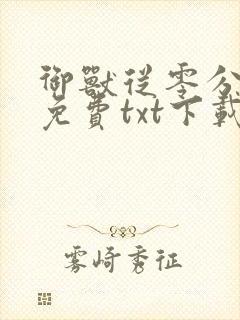 御獸從零分
免費txt下載
雾崎秀征